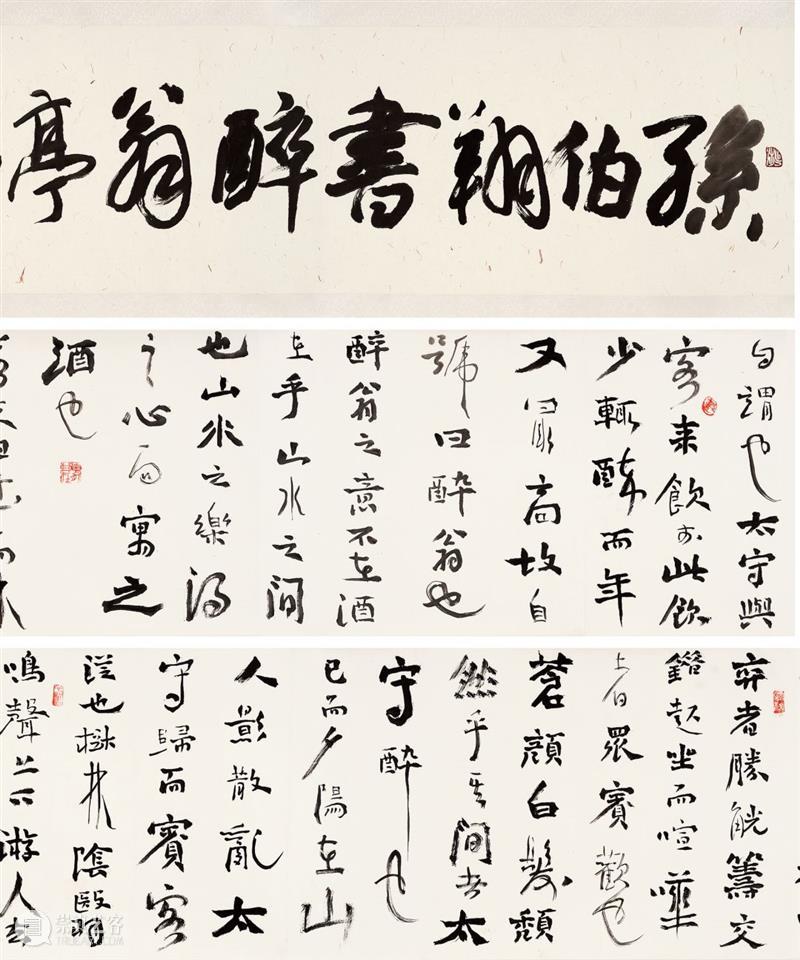 孫伯翔書醉翁亭
自謂也太守與
客来飲於此飲
少輒醉而年
又最高故自
號曰醉翁也
醉翁之意不在酒
在乎山水之间
也山水之樂得
之心而寓之
酒也
弈者勝觥籌交
錯起坐而喧嘩
者眾賓歡也
蒼顏白髮頹
然乎其間者太
守醉也
已而夕陽在山
人影散亂太
守歸而賓客
從也樹林陰翳
鳴聲上下游人去
崇真艺客